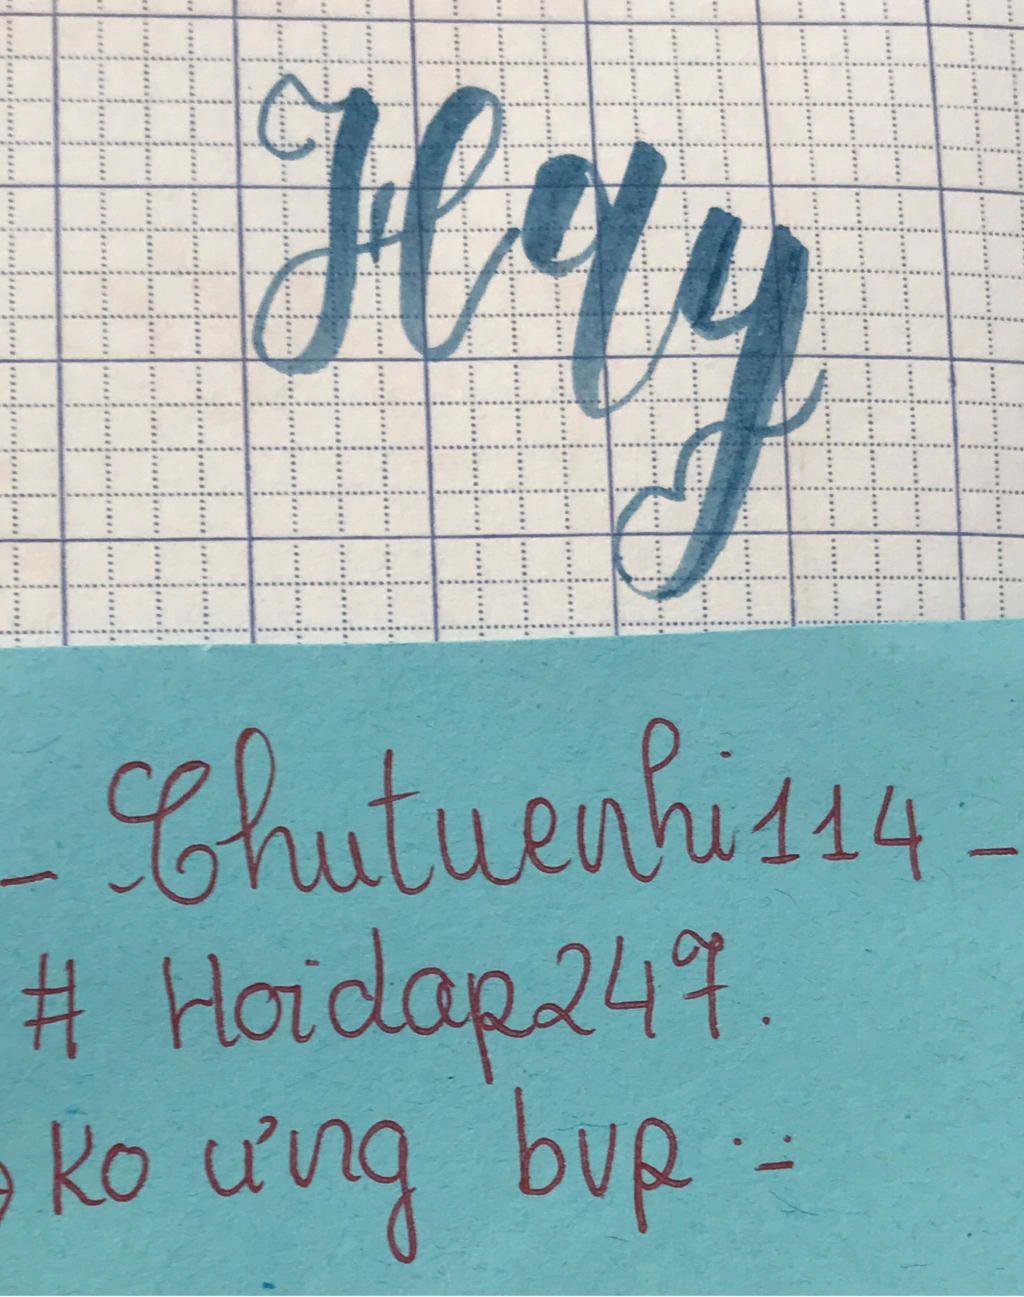 Hqy
- Chutuenhi114 -
# Hoidap247.
Ko ưng bvp :-